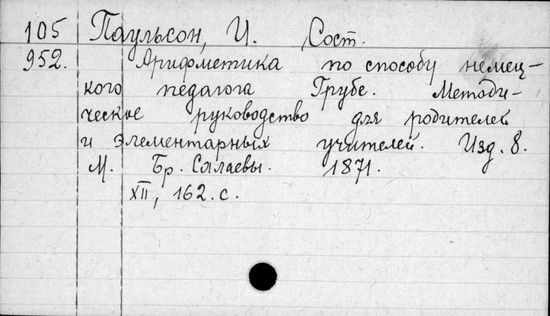 105 Паульсон, И. Сост.
952. Арифметика по способу немец-
кого педагога Грубе. Методи-
ческое руководство для родителей
и элементарных учителей. Изд. 8.
М. Бр. Салаевы. 1871.
XII, 162. с.